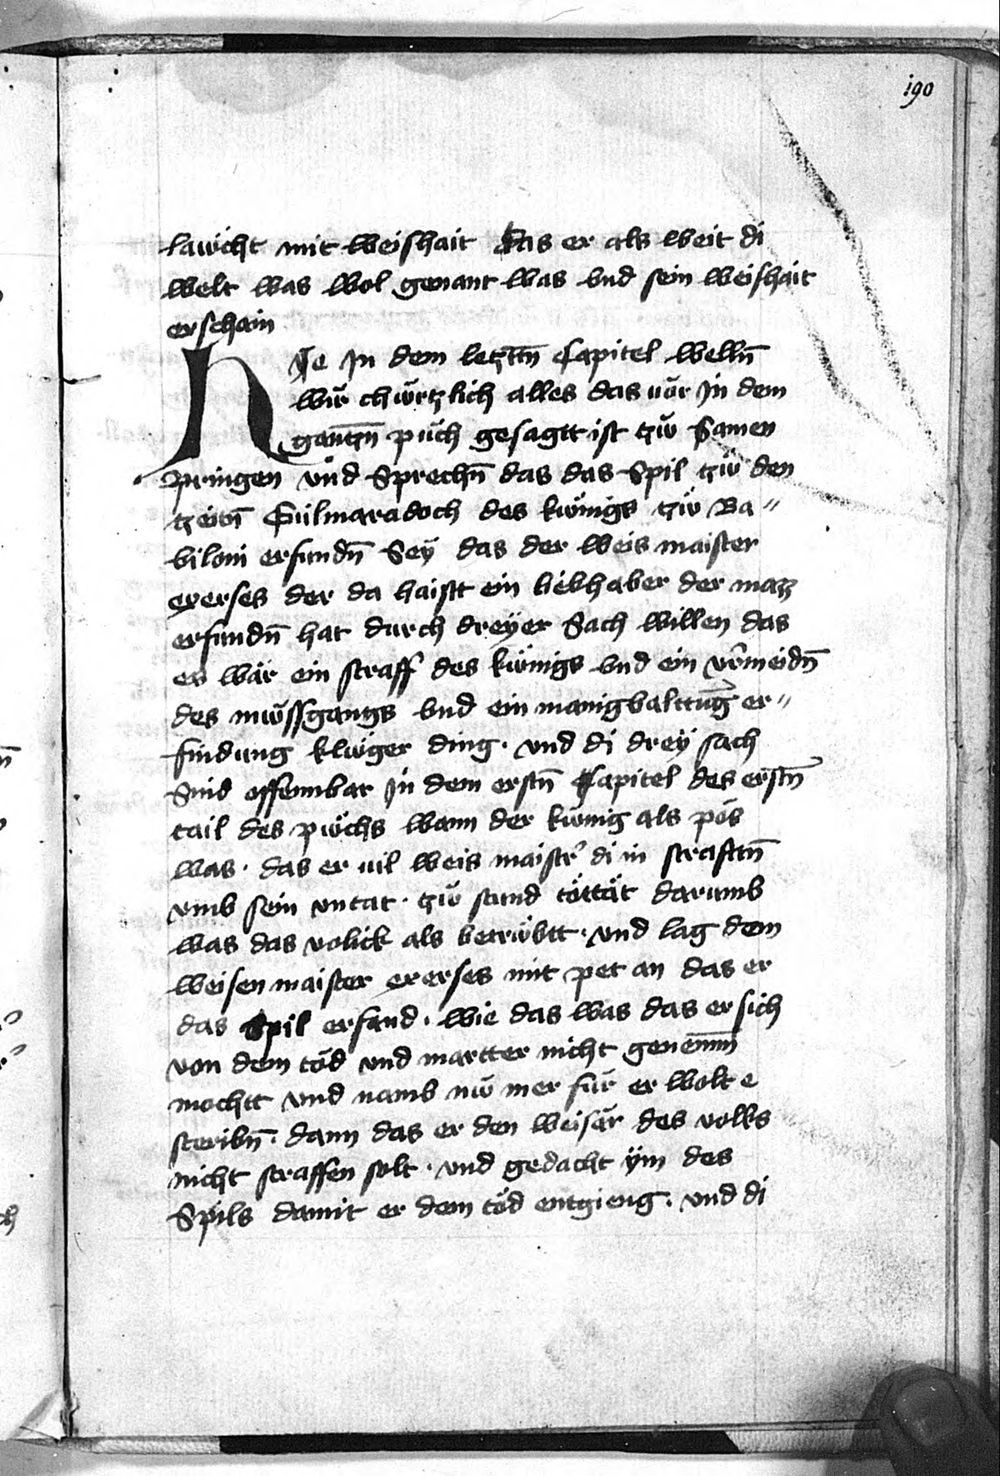 190
lawicht mit weishait Das er als weit di
welt was wol genant was vnd sein weishait
erschain
Hie In dem letztn̄ Capitel welln̄
wir chürtzlich alles das uör In dem
gantzn̄ püch gesagtt ist tzw̆ Samen
pringen vnd Sprechn̄ das das Spil tzw̆ den
tzeitn̄ Euilmaradoch des kw̆nigs tzw̆ Ba〃
biloni erfundn̄ Seÿ das der weis maister
exerses der da haistt ein liebhaber der mazz
erfundn̄ hat durch dreÿer Sach willen das
es wär ein straff des kw̆nigs vnd ein vermeidn̄
des mw̆ssgangs vnd ein manigualttūg er〃
findung klw̆ger ding · vnd di dreÿ sach
Sind offennbar In dem erstn̄ Capitel des erstn̄
tail des pw̆chs wann der kw̆nig als pös
was · das er uil weis maistr̄ di in strafftn̄
vmb sein vntat · tzw̆ stund töttät darumb
was das volkk als betrw̆btt · vnd lag dem
weisen maister exerses mit pet an das er
das Spil erfand · wie das was das er sich
von dem töd vnd martter nicht genemm̄
mochtt vnd namb nw̆ mer für er wolt e
steribn̄ · dann das er den weisär des volks
nicht straffen solt · vnd gedacht ÿm des
Spils damit er dem töd entgieng · vnd di